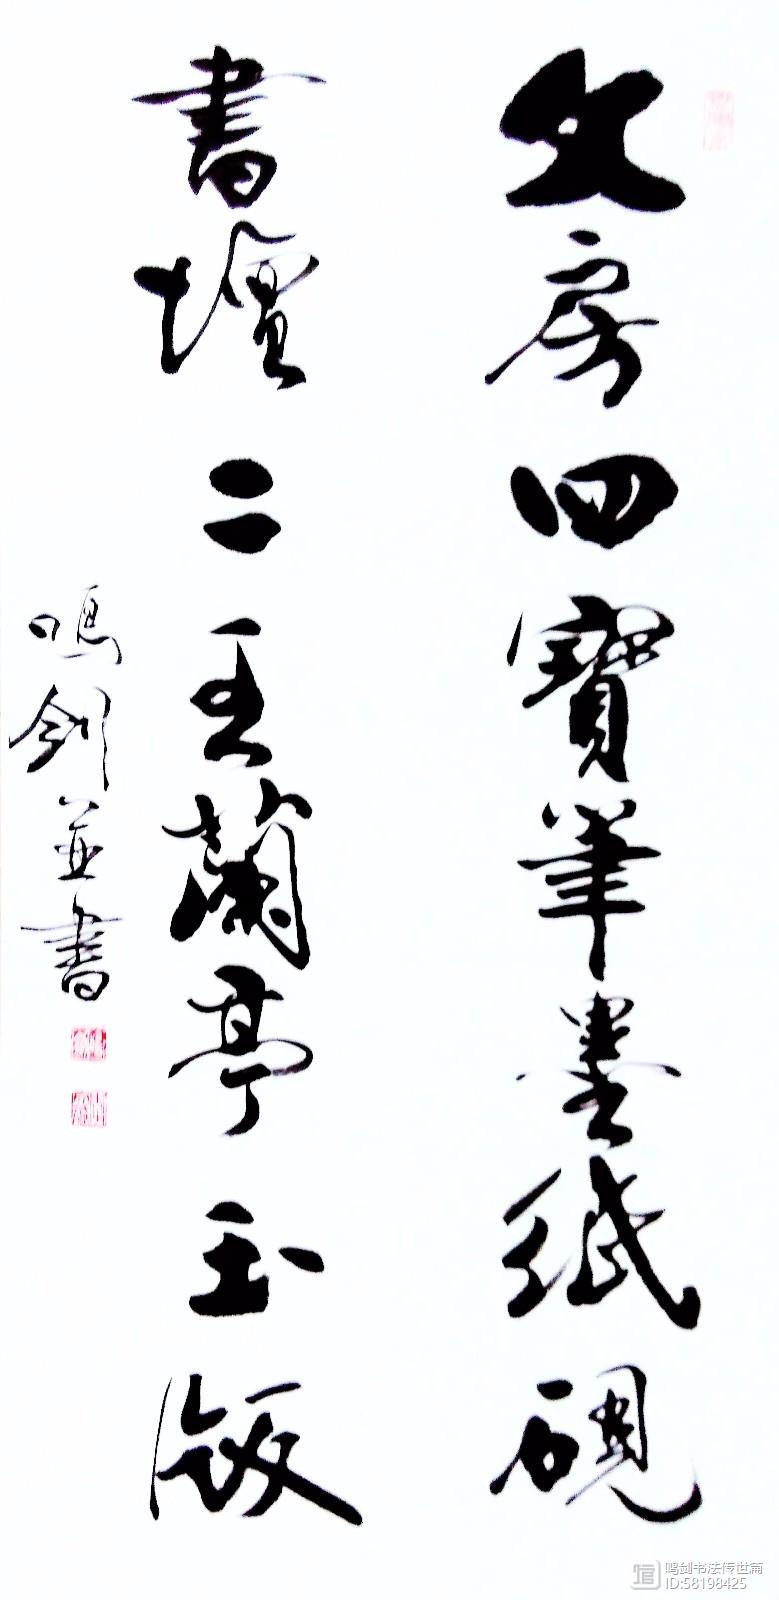 文房四寶筆墨紙硯
書壇二王蘭亭玉版
鳴劍並書
鸣剑书法传世篇
ID:58198425